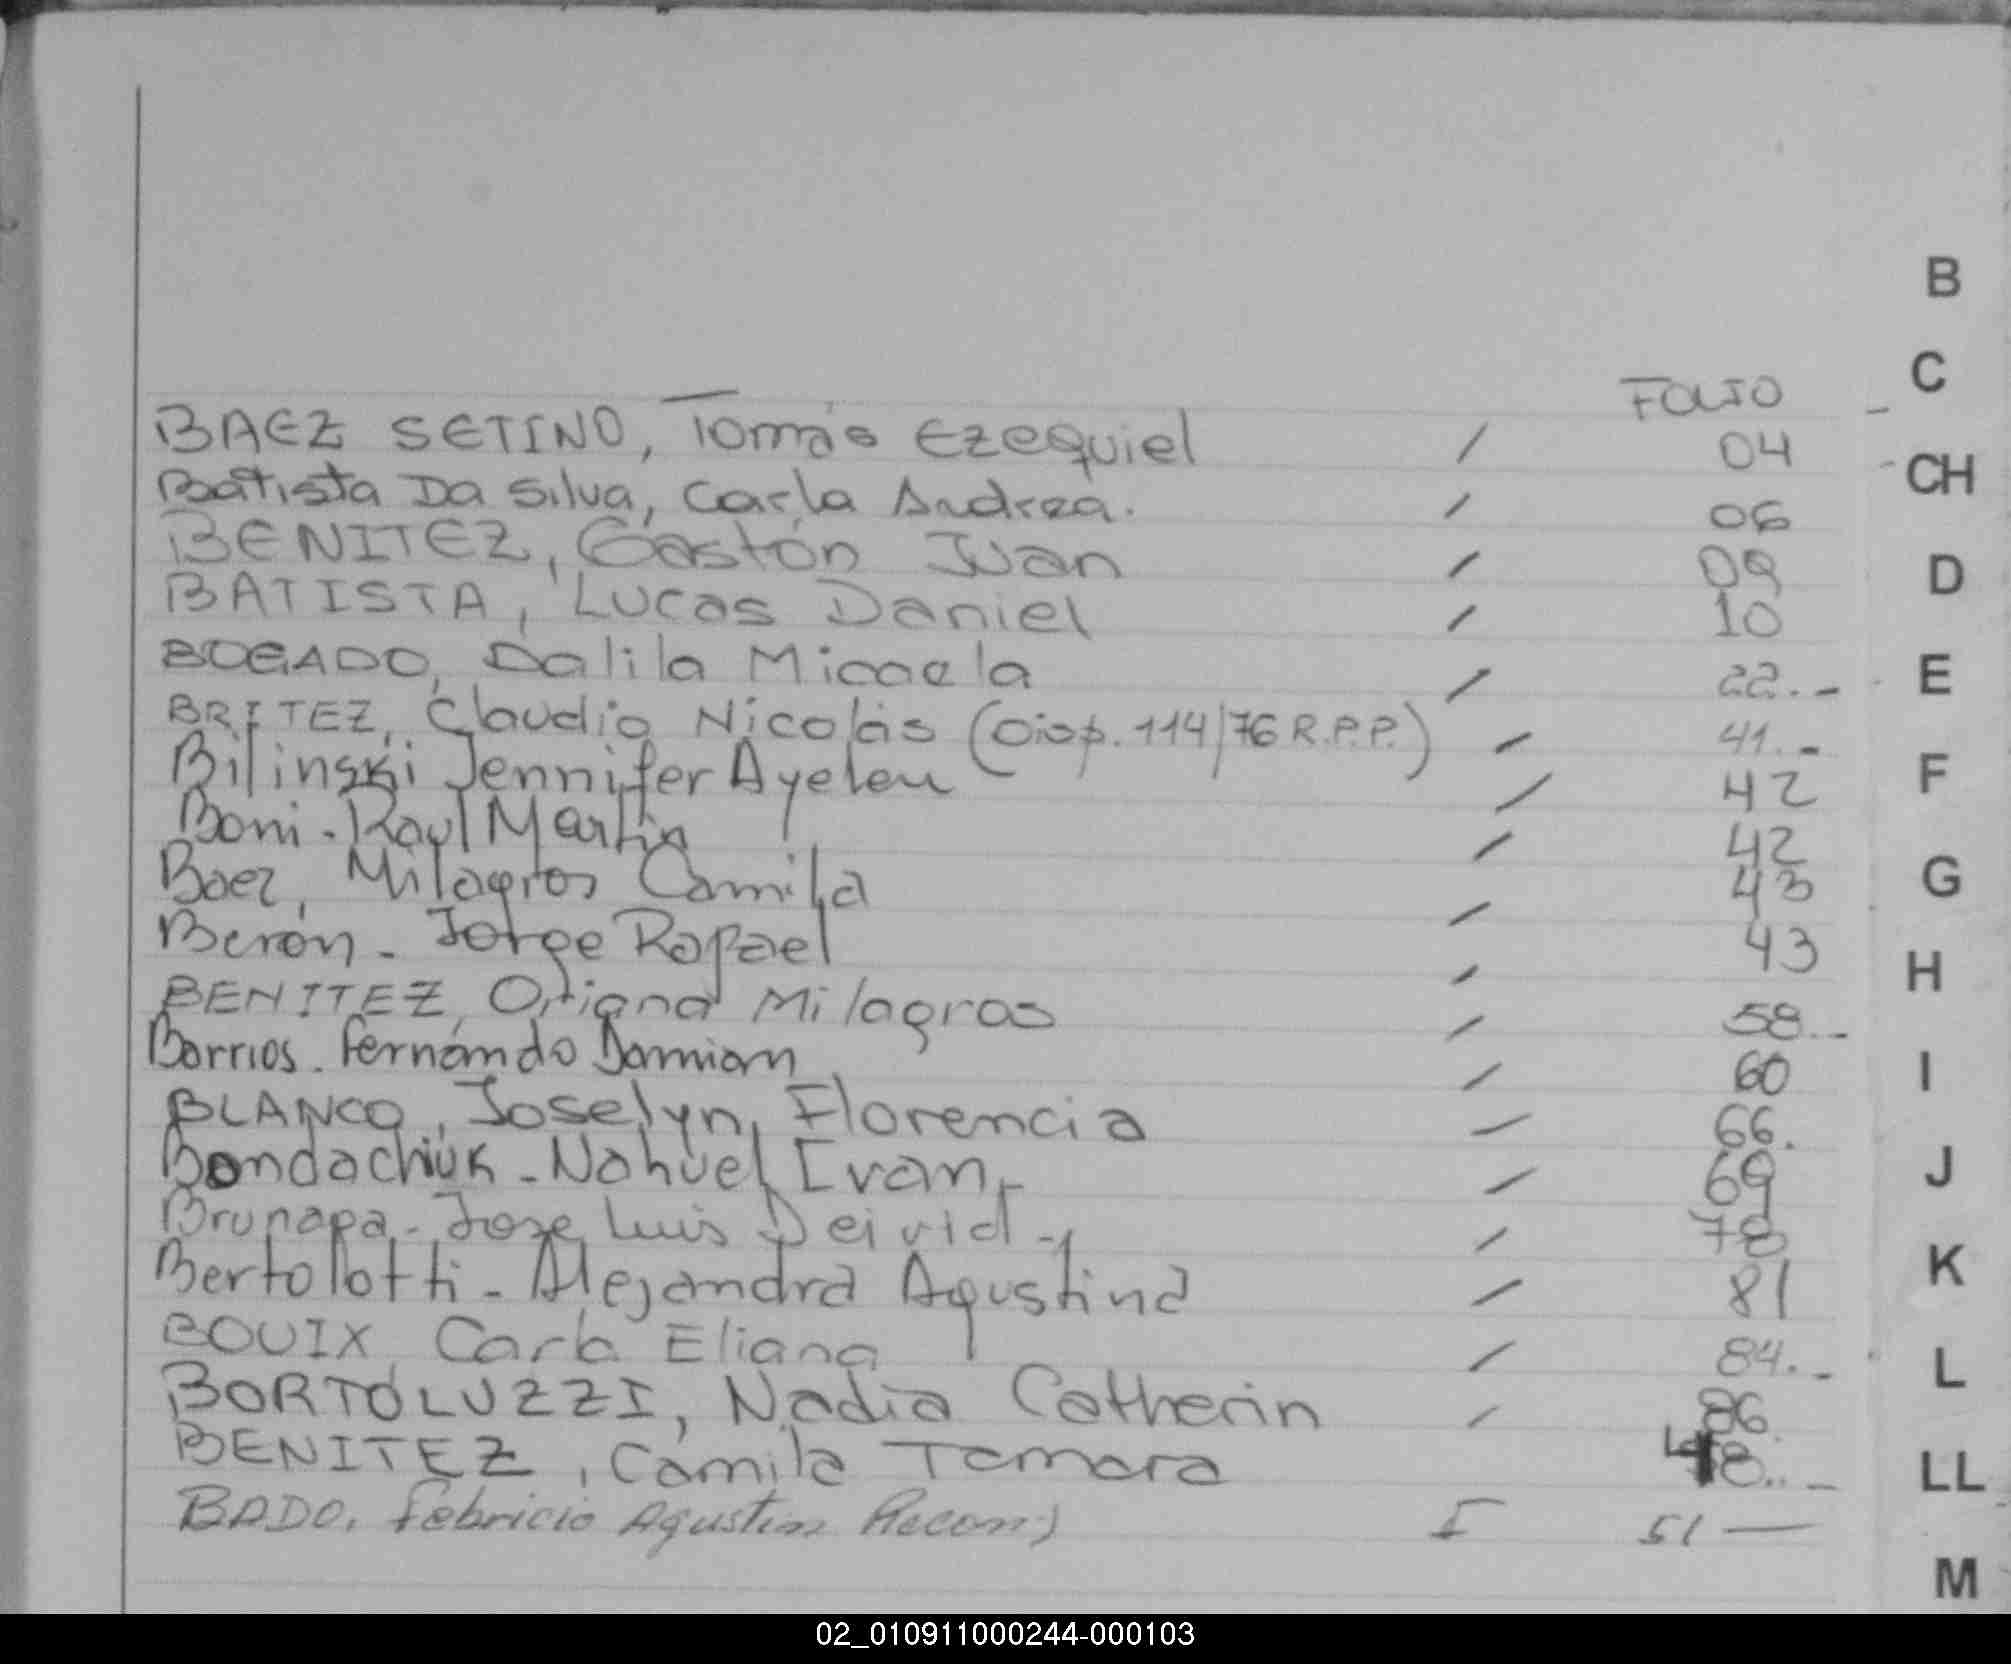 FOLIO
BAEZ SETINO, Tomás Ezequiel / 04
Batista Da Silva, Carla Andrea. / 06
BENITEZ, Gastón Juan / 09
BATISTA, Lucas Daniel / 10
BOGADO, Dalila Micaela / 22.-
BRITEZ, Claudio Nicolás (Disp. 114/76 R.P.P.) / 41.-
Bilinski Jennifer Ayelen / 42
Boni - Raul Martin / 42
Baez, Milagros Camila / 43
Berón - Jorge Rafael / 43
BENITEZ, Oriana Milagros / 58.-
Barrios - Fernando Damian / 60
BLANCO, Joselyn Florencia / 66.
Bondachiuk - Nahuel Ivan - / 69
Brunapa - Jose Luis Deivid - / 78
Bertolotti - Alejandra Agustina / 81
BOUIX, Carla Eliana / 84.-
BORTOLUZZI, Nadia Catherin / 86
BENITEZ, Camila Tamara 48.-
BADO, Fabricio Agustin Recon) I 51 —
B
C
CH
D
E
F
G
H
I
J
K
L
LL
M
02_010911000244-000103